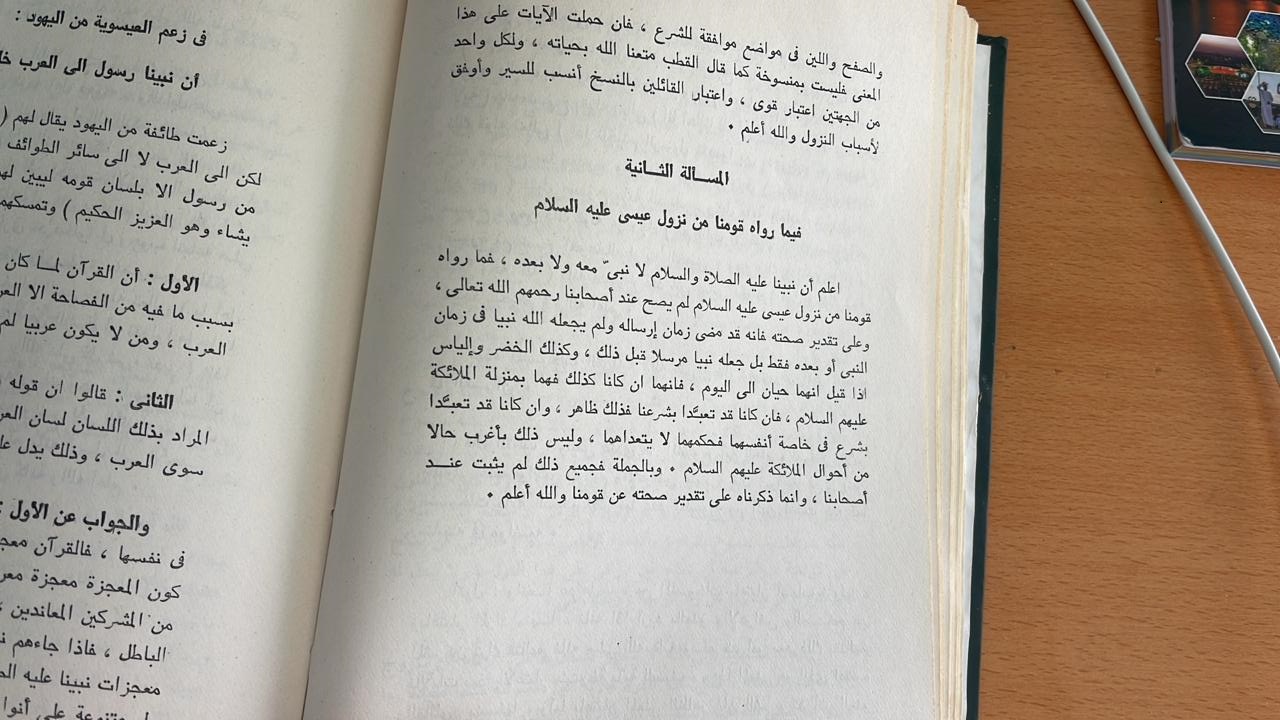 والصفح واللين فى مواضع موافقة للشرع ، فان حملت الآيات على هذا
المعنى فليست بمنسوخة كما قال القطب متعنا الله بحياته ، ولكل واحد
من الجهتين اعتبار قوى ، واعتبار القائلين بالنسخ أنسب للسير وأوفق
لأسباب النزول والله أعلم .
المســألة الثــانية
فيما رواه قومنا من نزول عيسى عليه السلام
اعلم أن نبينا عليه الصلاة والسلام لا نبىّ معه ولا بعده ، فما رواه
قومنا من نزول عيسى عليه السلام لم يصح عند أصحابنا رحمهم الله تعالى ،
وعلى تقدير صحته فانه قد مضى زمان إرساله ولم يجعله الله نبيا فى زمان
النبى أو بعده فقط بل جعله نبيا مرسلا قبل ذلك ، وكذلك الخضر وإلياس
اذا قيل انهما حيان الى اليوم ، فانهما ان كانا كذلك فهما بمنزلة الملائكة
عليهم السلام ، فان كانا قد تعبَّدا بشرعنا فذلك ظاهر ، وان كانا قد تعبَّدا
بشرع فى خاصة أنفسهما فحكمهما لا يتعداهما ، وليس ذلك بأغرب حالا
من أحوال الملائكة عليهم السلام . وبالجملة فجميع ذلك لم يثبت عنــد
أصحابنا ، وانما ذكرناه على تقدير صحته عن قومنا والله أعلم .
فى زعم العيسوية من اليهود :
أن نبينا رسول الى العرب
زعمت طائفة من اليهود يقال لهم (
لكن الى العرب لا الى سائر الطوائف
من رسول الا بلسان قومه ليبين
يشاء وهو العزيز الحكيم )
الأول : أن القرآن لمــا كان
بسبب ما فيه من الفصاحة الا
العرب ، ومن لا يكون عربيا لم
الثانى : قالوا ان قوله
المراد بذلك اللسان لسان
سوى العرب ، وذلك يدل
والجواب عن الأول :
فى نفسها ، فالقرآن
كون المعجزة معجزة
من المشركين المعاندين ،
الباطل ، فاذا جاءهم
معجزات نبينا عليه